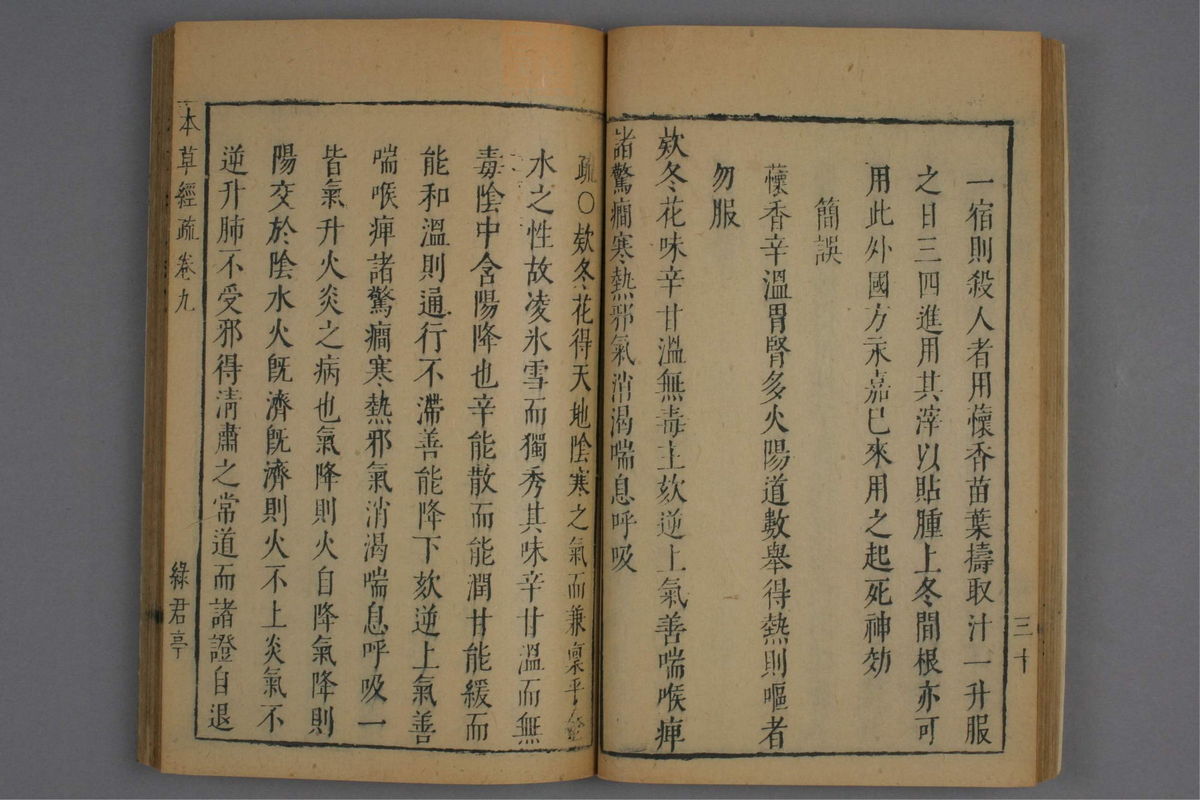 一宿則殺人者用懷香苗葉擣取汁一升服
之日三四進用其滓以貼腫上冬間根亦可
用此外國方永嘉已來用之起死神効
簡誤
懷香辛溫胃腎多火陽道數舉得熱則嘔者
勿服
欵冬花味辛甘溫無毒主欬逆上氣善喘喉痺
諸驚癎寒熱邪氣消渴喘息呼吸
三十
疏○欵冬花得天地陰寒之氣而兼稟乎
水之性故凌氷雪而獨秀其味辛甘溫而無
毒陰中含陽降也辛能散而能潤甘能緩而
能和溫則通行不滯善能降下欬逆上氣善
喘喉痺諸驚癎寒熱邪氣消渴喘息呼吸一
皆氣升火炎之病也氣降則火自降氣降則
陽交於陰水火旣濟旣濟則火不上炎氣不
逆升肺不受邪得清肅之常道而諸證自退
本草經疏卷九
綠君亭